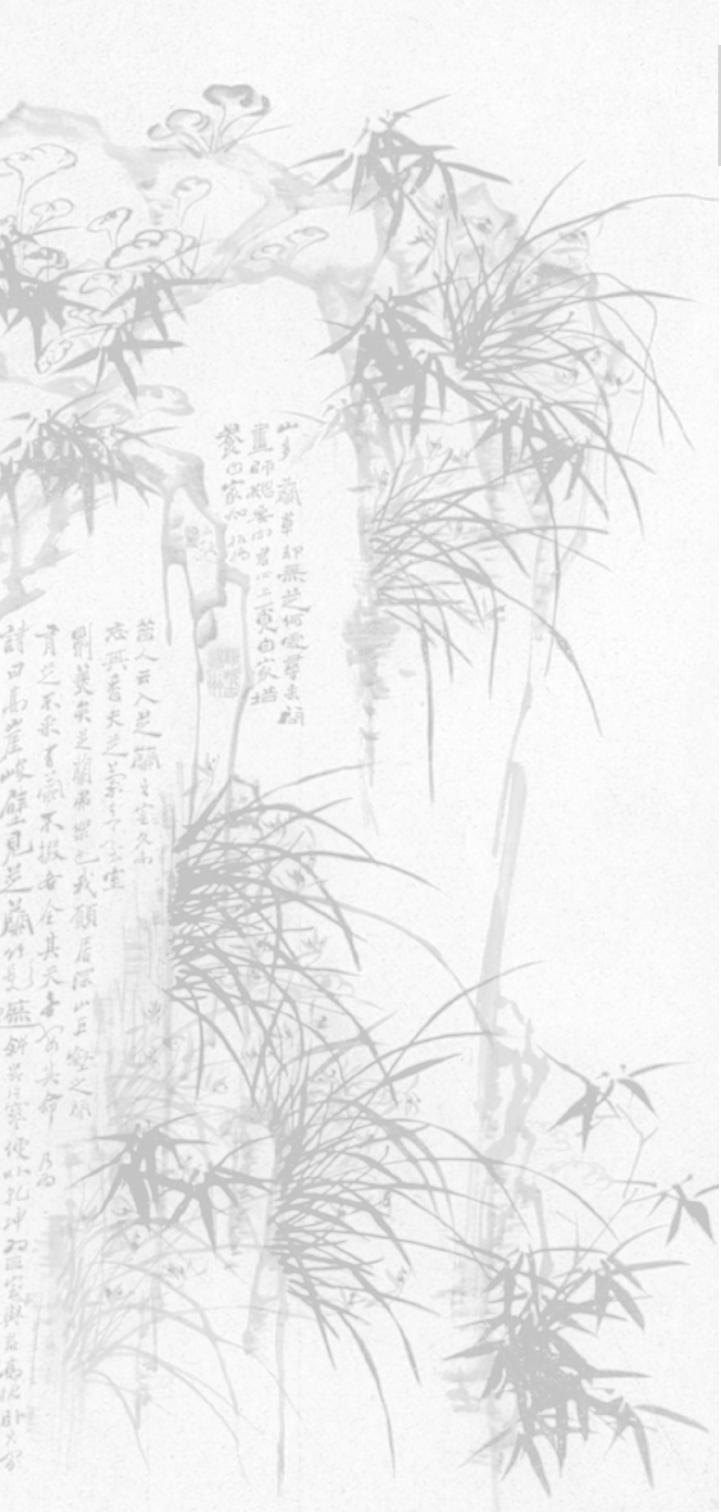 山多蘭草却無芝何處尋来問
畫師總要向君心上覓自家培
養自家知
昔人云入芝蘭之室久而
忘其香夫芝蘭入室室
則美矣芝蘭弗樂也我願居深山巨壑之間
有芝不采有蘭不掇各全其天各安其命乃為
詩曰高崖峻壁見芝蘭竹影遮斜幾片寒便以乾坤為巨室與君高枕臥其間